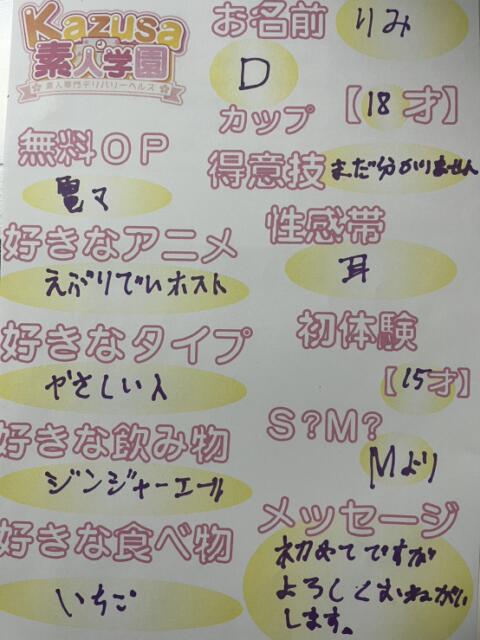 Kazusa
素人学園
素人専門デリバリーヘルス
お名前 りみ
D
カップ
【18才】
無料OP
電マ
得意技 まだ分かりません
好きなアニメ
えぶりでいホスト
性感帯
耳
好きなタイプ
やさしい人
好きな飲み物
ジンジャーエール
S?M?
Mより
好きな食べ物
いちご
メッセージ
初めてですが
よろしくおねがい
します。